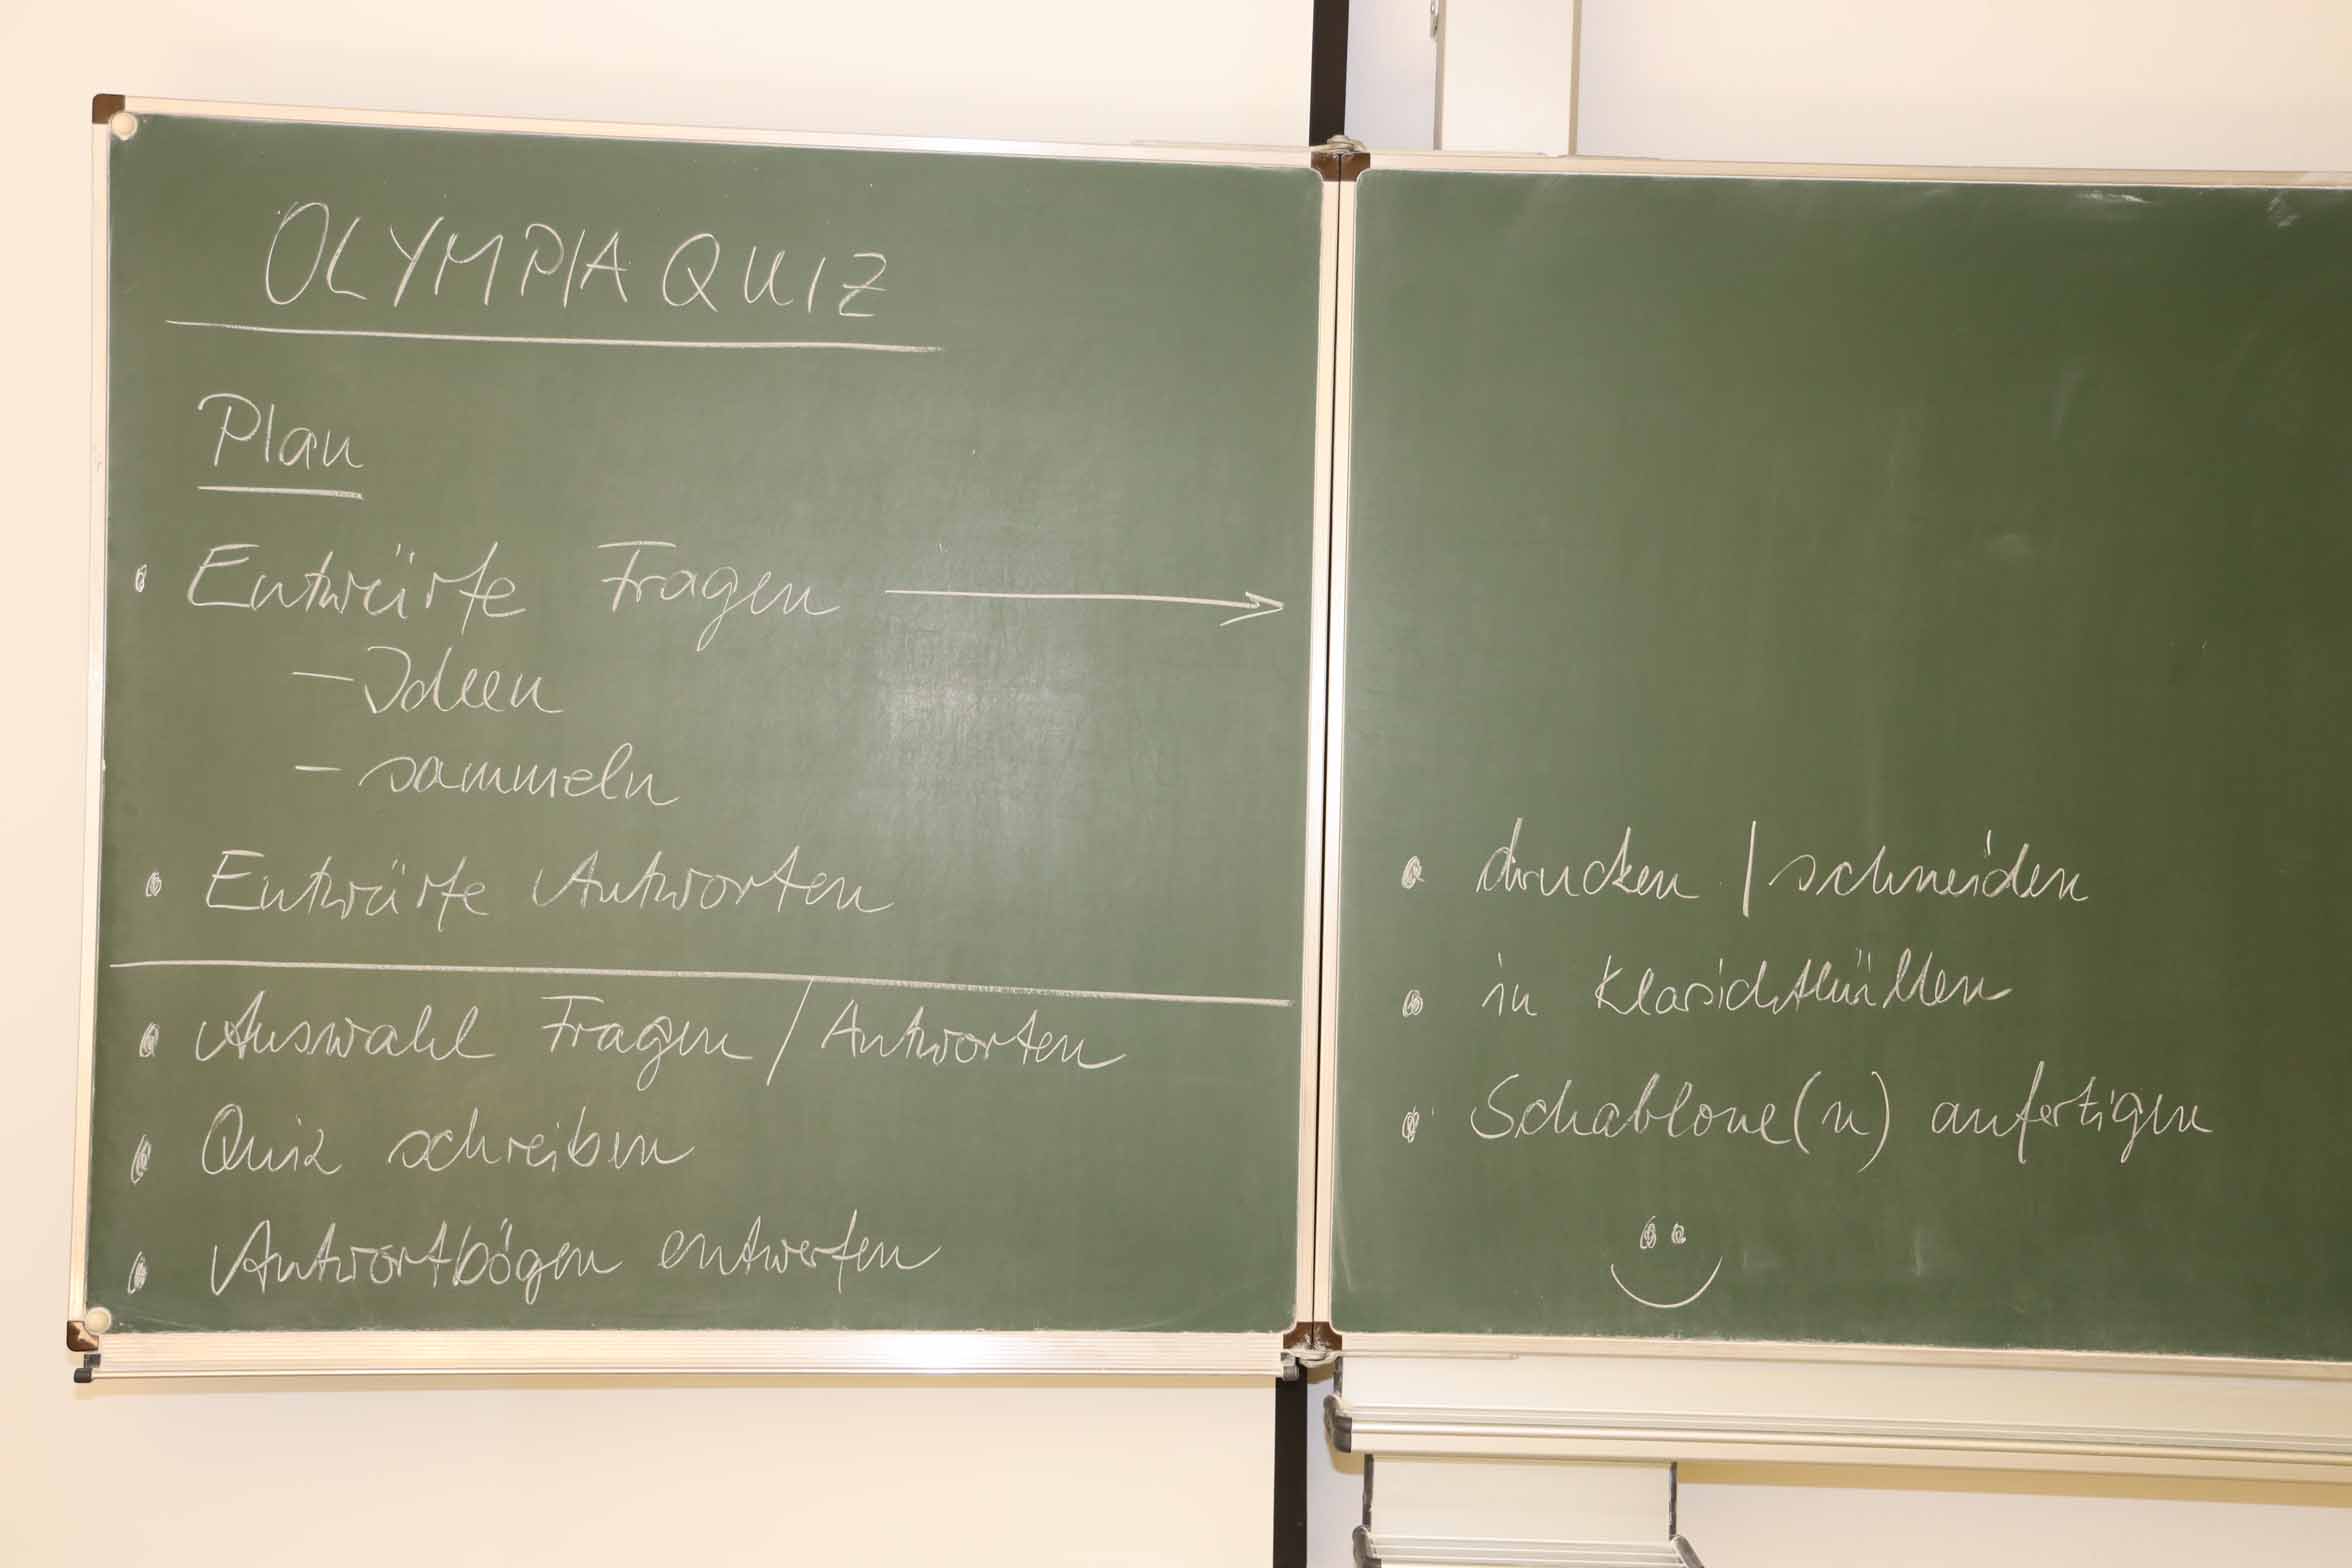 OLYMPIAQUIZ
Plan
• Entwürfe Fragen →
– Ideen
– sammeln
• Entwürfe Antworten
• Auswahl Fragen / Antworten
• Quiz schreiben
• Antwortbögen entwerfen
• drucken / schneiden
• in Klarsichthüllen
• Schablone(n) anfertigen